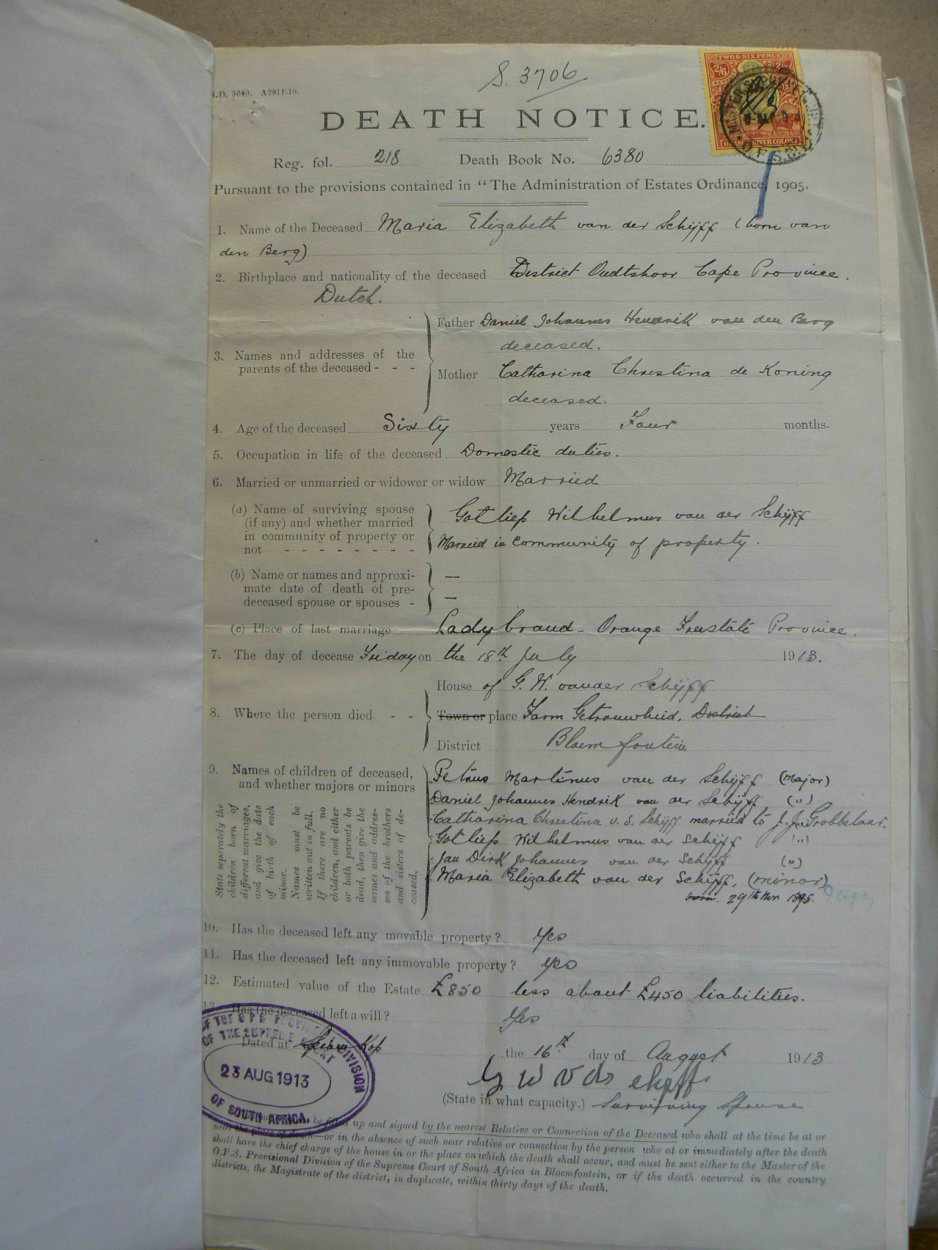 S. 3706
R.D. 5040. A2811-10.
TWO & SIX PENCE
2/6
DEATH NOTICE.
Reg. fol. 218 Death Book No. 6380
Pursuant to the provisions contained in "The Administration of Estates Ordinance, 1905.
1. Name of the Deceased Maria Elizabeth van der Schijff (born van
den Berg)
2. Birthplace and nationality of the deceased District Oudtshoor Cape Province.
Dutch.
Father Daniel Johannes Hendrik van den Berg
deceased.
3. Names and addresses of the
parents of the deceased - - -
Mother Catharina Christina de Koning
deceased.
4. Age of the deceased Sixty years Four months.
5. Occupation in life of the deceased Domestic duties.
6. Married or unmarried or widower or widow Married
(a) Name of surviving spouse
(if any) and whether married
in community of property or
not - - - - - - - -
Gotliep Wilhelmus van der Schijff
Married in community of property.
(b) Name or names and approxi-
mate date of death of pre-
deceased spouse or spouses -
—
—
(c) Place of last marriage Ladybrand - Orange Freestate Province.
7. The day of decease Friday on the 18th July 1913.
House of G. W. van der Schijff
8. Where the person died - - Town or place Farm Getrouwheid. District
District Bloemfontein
9. Names of children of deceased,
and whether majors or minors
State seperately the
children born of
different marriages,
and give the date
of birth of each
minor.
Names must be
written out in full.
If there are no
children, and either
or both parents be
dead, then give the
names and addres-
ses of the brothers
and sisters of de-
ceased.
Petrus Martinus van der Schijff (Major)
Daniel Johannes Hendrik van der Schijff (")
Catharina Christina v. d. Schijff married to J. J. Grobbelaar.
Gotliep Wilhelmus van der Schijff "
Jan Dirk Johannes van der Schijff (")
Maria Elizabeth van der Schijff, (minor)
born. 29th
10. Has the deceased left any movable property? Yes
11. Has the deceased left any immovable property? yes
12. Estimated value of the Estate £850 less about £450 liabilities.
13. Has the deceased left a will? Yes
Dated at Kop the 16th day of August 1913
G W v ds cheff
(State in what capacity.) Surviving Spouse
DIVISION
OF THE SUPREME COURT
23 AUG 1913
OF SOUTH AFRICA.
be filled up and signed by the nearest Relative or Connection of the Deceased who shall at the time be at or
near the place of death—or in the absence of such near relative or connection by the person who at or immediately after the death
shall have the chief charge of the house in or the place on which the death shall occur, and must be sent either to the Master of the
O.F.S. Provisional Division of the Supreme Court of South Africa in Bloemfontein, or if the death occurred in the country
districts, the Magistrate of the district, in duplicate, within thirty days of the death.